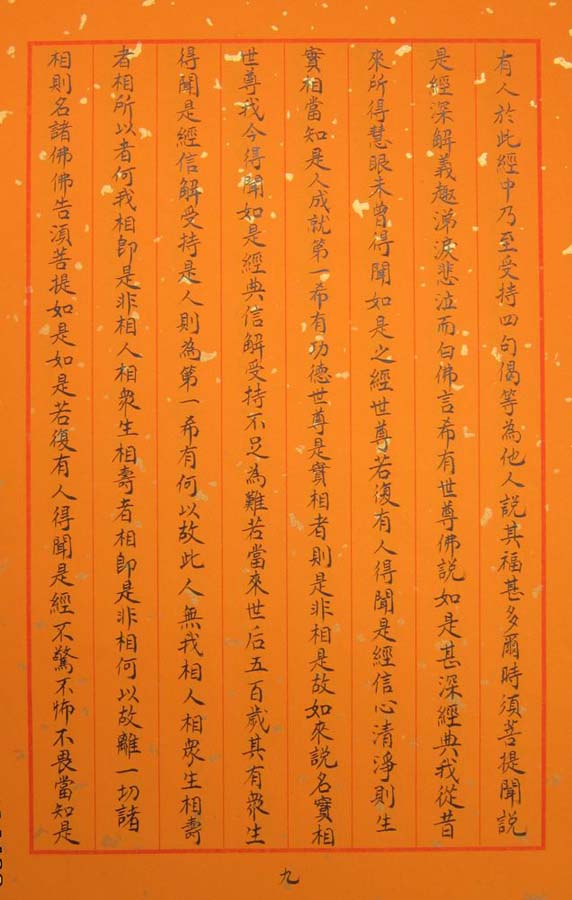 有人於此經中乃至受持四句偈等為他人說其福甚多爾時須菩提聞說
是經深解義趣涕淚悲泣而白佛言希有世尊佛說如是甚深經典我從昔
來所得慧眼未曾得聞如是之經世尊若復有人得聞是經信心清淨則生
實相當知是人成就第一希有功德世尊是實相者則是非相是故如來說名實相
世尊我今得聞如是經典信解受持不足為難若當來世后五百歲其有衆生
得聞是經信解受持是人則為第一希有何以故此人無我相人相衆生相壽
者相所以者何我相即是非相人相衆生相壽者相即是非相何以故離一切諸
相則名諸佛佛告須菩提如是如是若復有人得聞是經不驚不怖不畏當知是
九